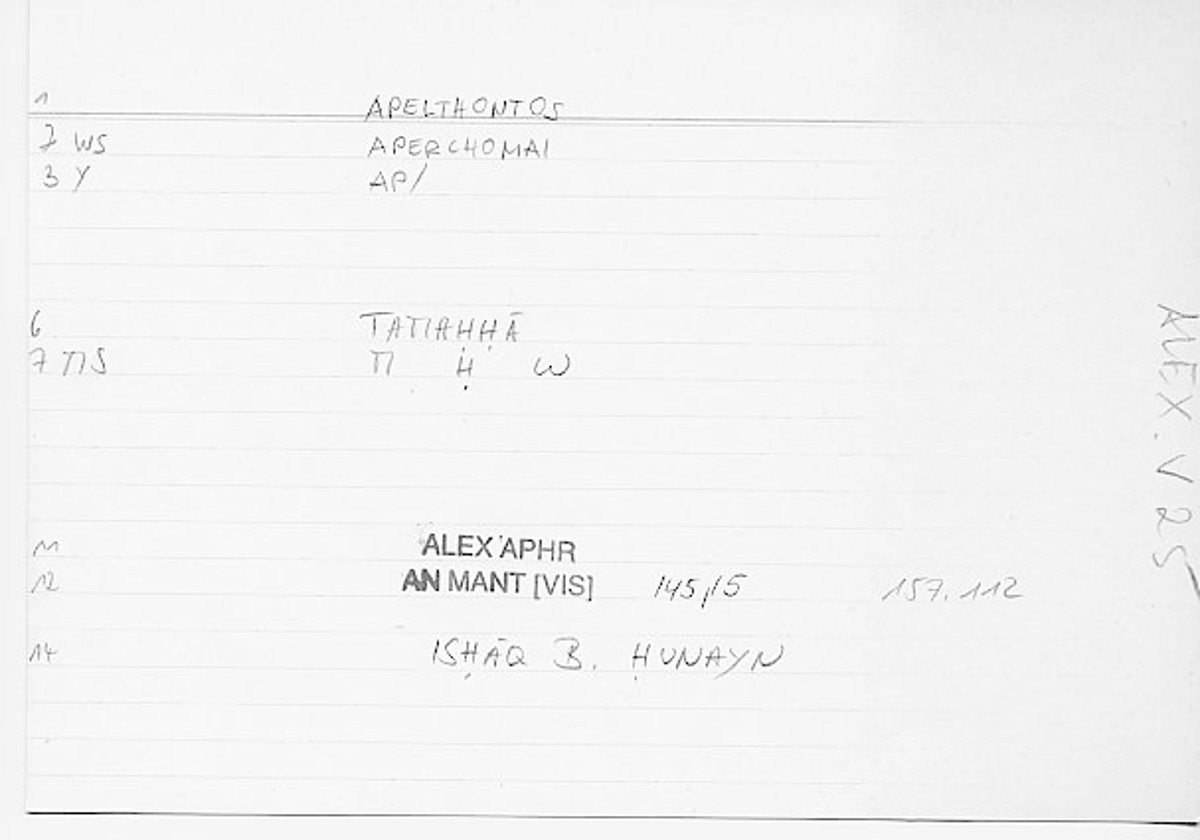 1 APELTHONTOS
2 WS APERCHOMAI
3 Y AP/
6 TATNAḤḤĀ
7 TIS N Ḥ W
11 ALEX APHR
12 AN MANT [VIS] 145,15 157.112
14 ISḤĀQ B. ḤUNAYN
ALEX. V 25